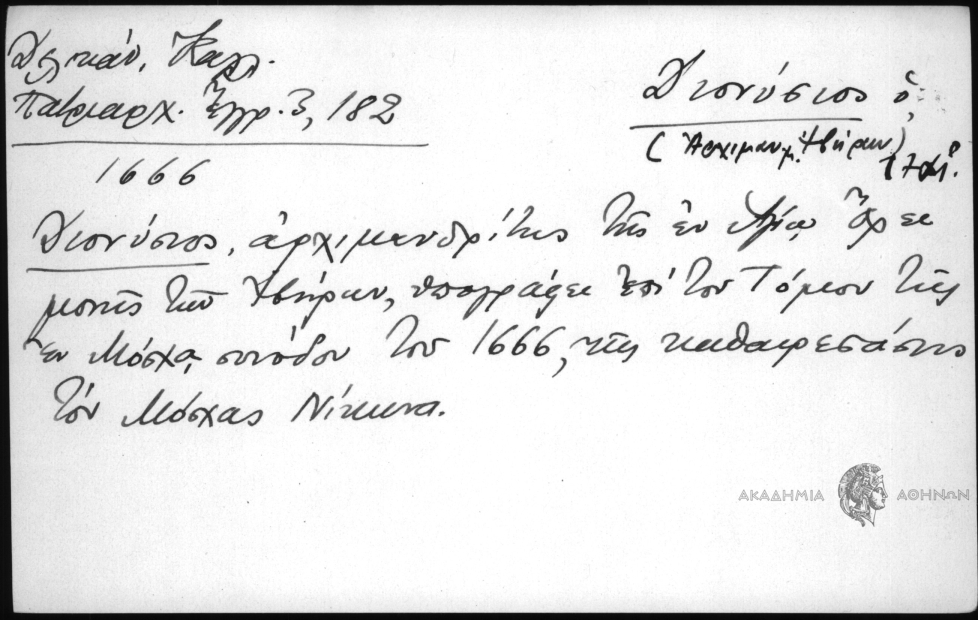 Δελικάν. Καλλ.
Πατριαρχ. Ἔγγρ. 3, 182
1666
Διονύσιος ὁ,
(Ἀρχιμανδρ. Ἰβήρων)
Διονύσιος, ἀρχιμανδρίτης τῆς ἐν Ἁγίῳ Ὄρει
μονῆς τῶν Ἰβήρων, ὑπογράφει ἐπί τοῦ Τόμου τῆς
ἐν Μόσχᾳ συνόδου τοῦ 1666, τῆς καθαιρεσάσης
τόν Μόσχας Νίκωνα.
ΑΚΑΔΗΜΙΑ ΑΘΗΝΩΝ